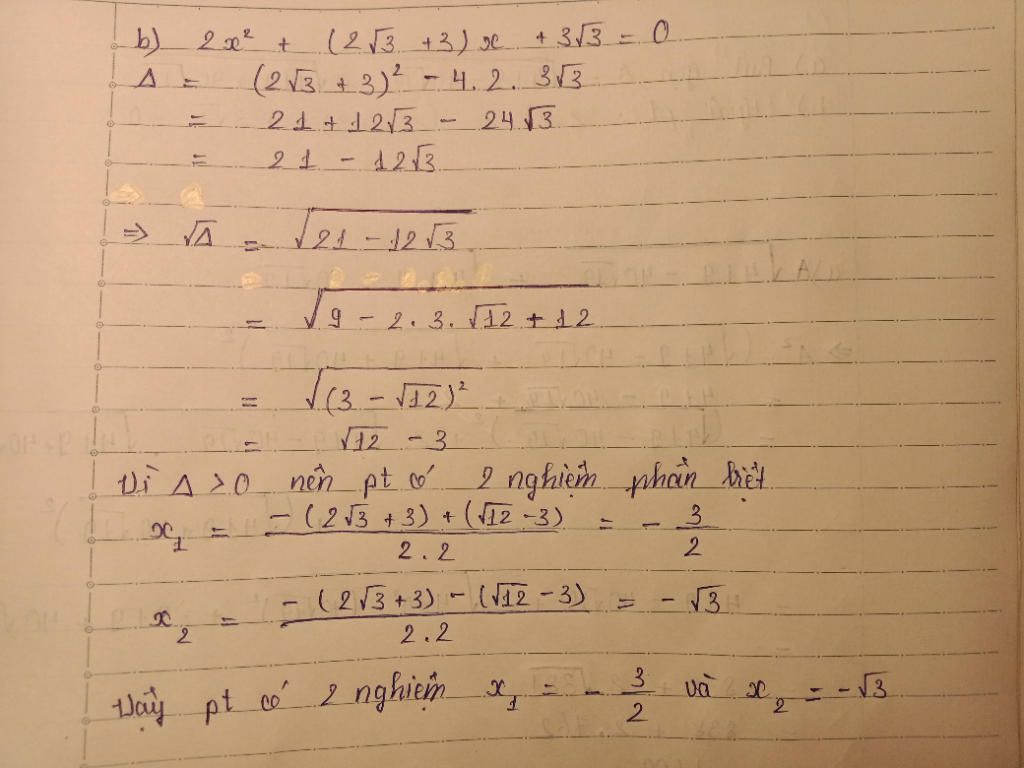 b) 2x² + (2√3 + 3)x + 3√3 = 0
Δ = (2√3 + 3)² - 4.2.3√3
= 21 + 12√3 - 24√3
= 21 - 12√3
⇒ √Δ = √(21 - 12√3)
= √(9 - 2.3.√12 + 12)
= √((3 - √12)²)
= √12 - 3
Vì Δ > 0 nên pt có 2 nghiệm phân biệt
x₁ = (-(2√3 + 3) + (√12 - 3))/(2.2) = -3/2
x₂ = (-(2√3 + 3) - (√12 - 3))/(2.2) = -√3
Vậy pt có 2 nghiệm x₁ = -3/2 và x₂ = -√3